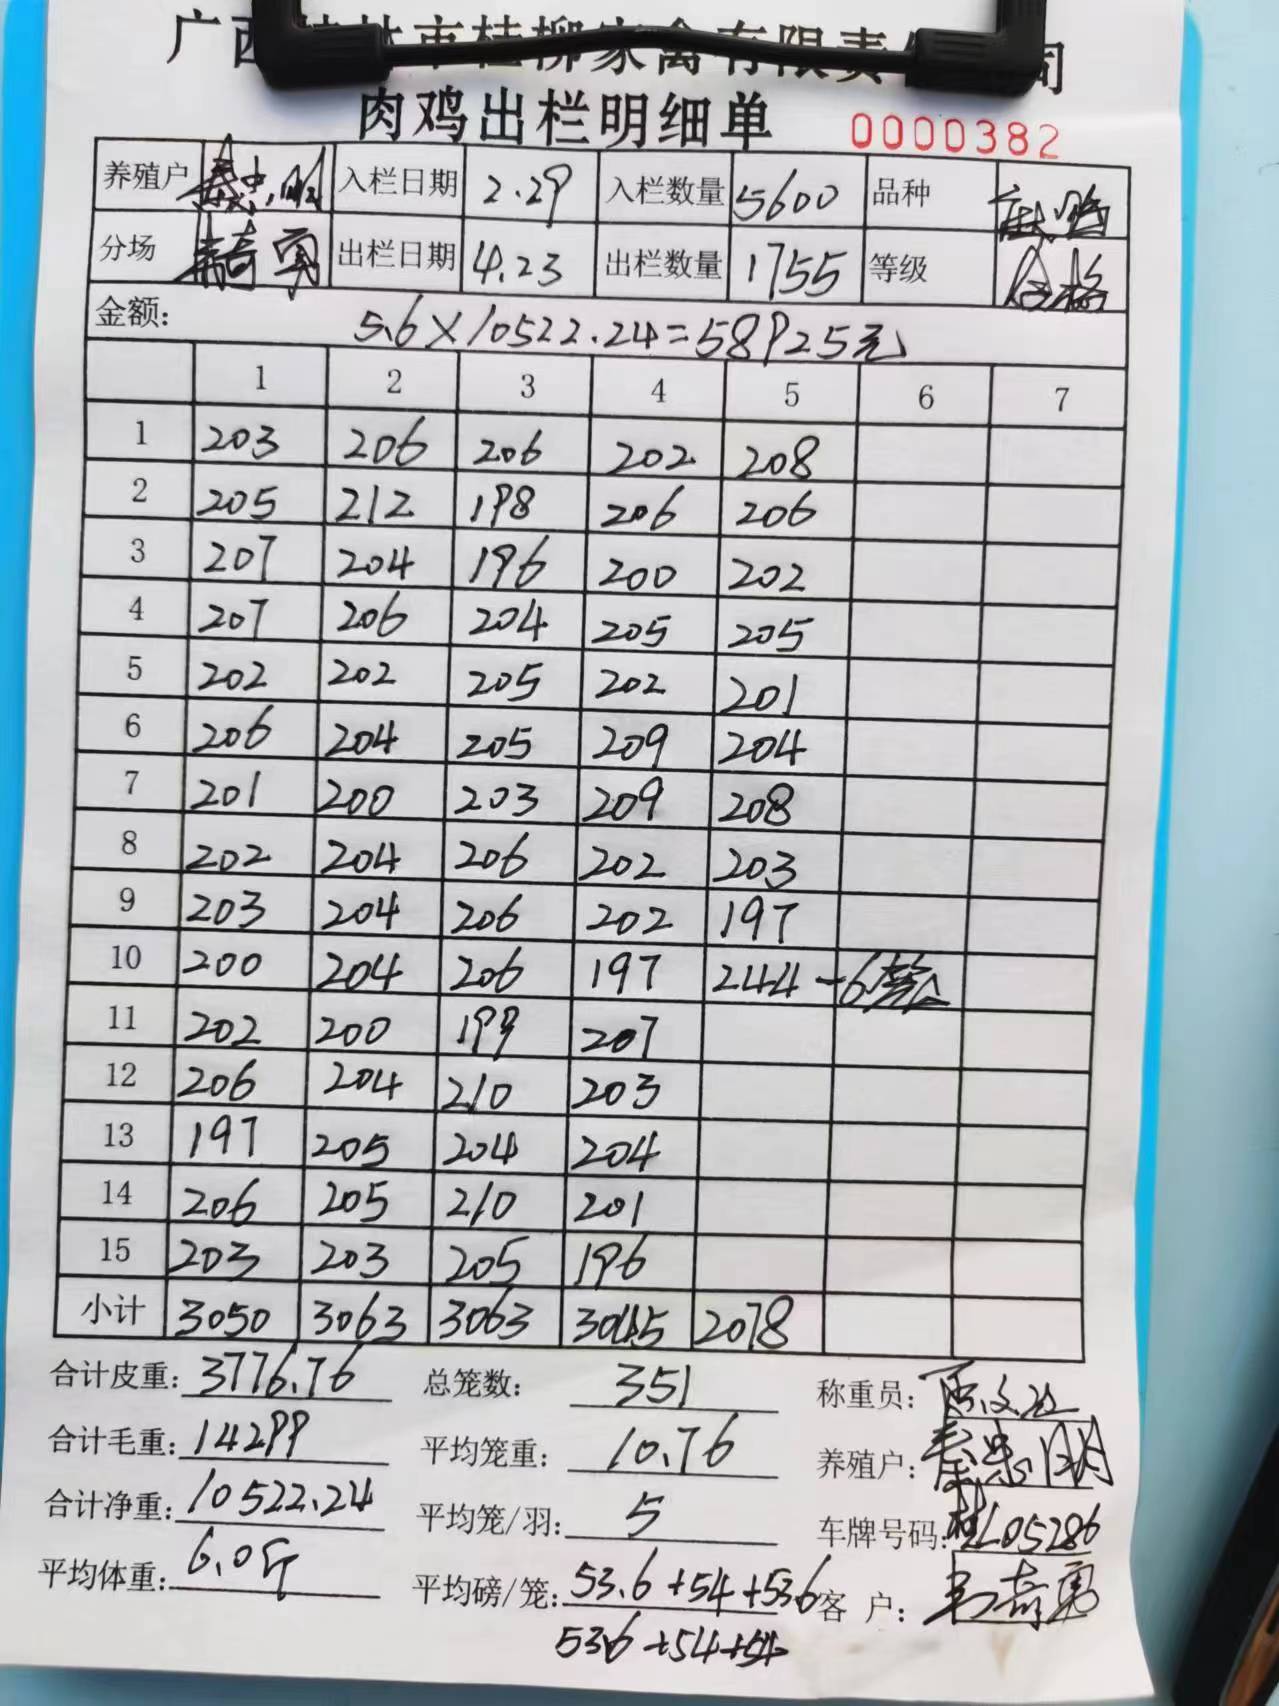 广西 市桂柳家禽有限责 司
肉鸡出栏明细单 0000382
养殖户 秦忠明 入栏日期 2.29 入栏数量 5600 品种
分场 出栏日期 4.23 出栏数量 1755 等级 合格
金额: 5.6×10522.24=58925元
1 2 3 4 5 6 7
1 203 206 206 202 208
2 205 212 198 206 206
3 207 204 196 200 202
4 207 206 204 205 205
5 202 202 205 202 201
6 206 204 205 209 204
7 201 200 203 209 208
8 202 204 206 202 203
9 203 204 206 202 197
10 200 204 206 197 244-6笼
11 202 200 199 207
12 206 204 210 203
13 197 205 204 204
14 206 205 210 201
15 203 203 205 196
小计 3050 3063 3063 3045 2078
合计皮重: 3776.76 总笼数: 351 称重员:
合计毛重: 14299 平均笼重: 10.76 养殖户: 秦忠明
合计净重: 10522.24 平均笼/羽: 5 车牌号码: 05286
平均体重: 6.0斤 平均磅/笼: 53.6+54+53.6 客 户:
53.6+54+54